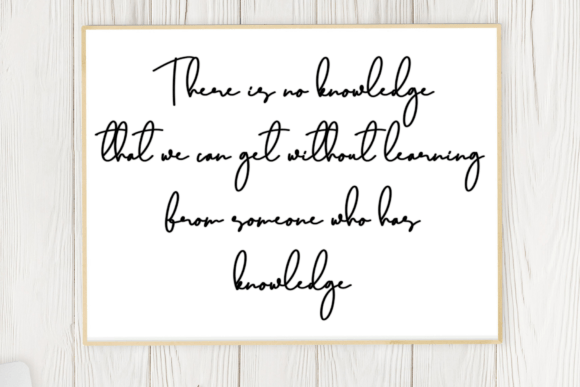 There is no knowledge
that we can get without learning
from someone who has
knowledge